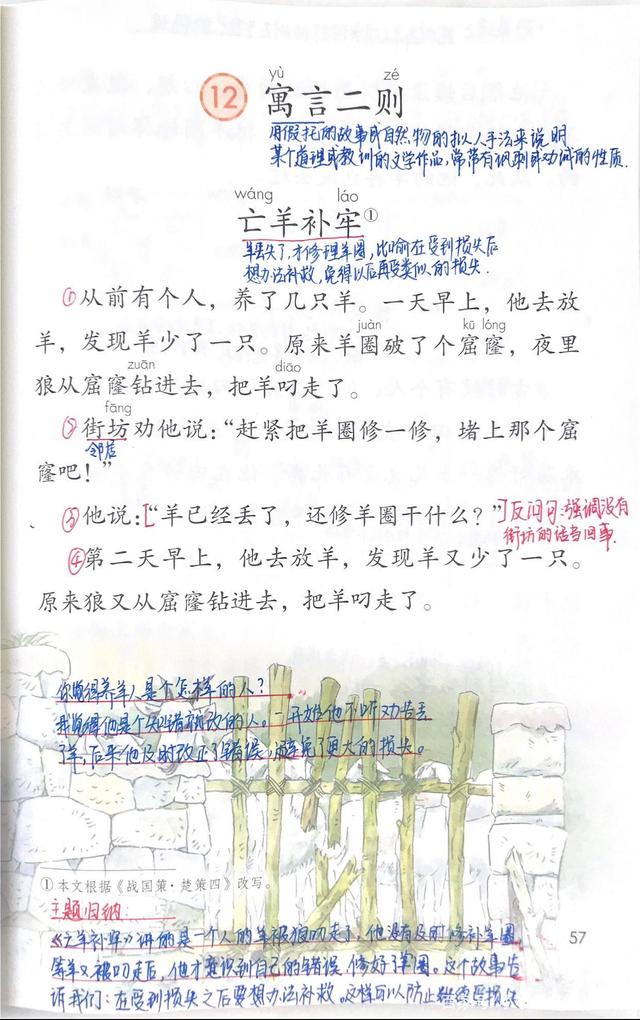 yù zé
12 寓言二则
用假托的故事或自然物的拟人手法来说明
某个道理或教训的文学作品,常带有讽刺或劝诫的性质.
wáng láo
亡羊补牢①
羊丢失了,才修理羊圈,比喻在受到损失后
想办法补救,免得以后再受类似的损失.
①从前有个人,养了几只羊。一天早上,他去放
羊,发现羊少了一只。原来羊圈破了个窟窿,夜里
juàn kū lóng
狼从窟窿钻进去,把羊叼走了。
zuān diāo
fāng
②街坊劝他说:“赶紧把羊圈修一修,堵上那个窟
邻居
窿吧!”
③他说:[“羊已经丢了,还修羊圈干什么?”]反问句:强调没有
街坊的话当回事.
④第二天早上,他去放羊,发现羊又少了一只。
原来狼又从窟窿钻进去,把羊叼走了。
你觉得养羊人是个怎样的人?
我觉得他是个知错就改的人。一开始他不听劝告丢
了羊,后来他及时改正了错误,避免了更大的损失。
①本文根据《战国策·楚策四》改写。
主题归纳:
57
《亡羊补牢》讲的是一个人的羊被狼叼走了,他没有及时修补羊圈
等羊又被叼走后,他才意识到自己的错误,修好了羊圈。这个故事告
诉我们:在受到损失之后要想办法补救。这样可以防止继续受损失